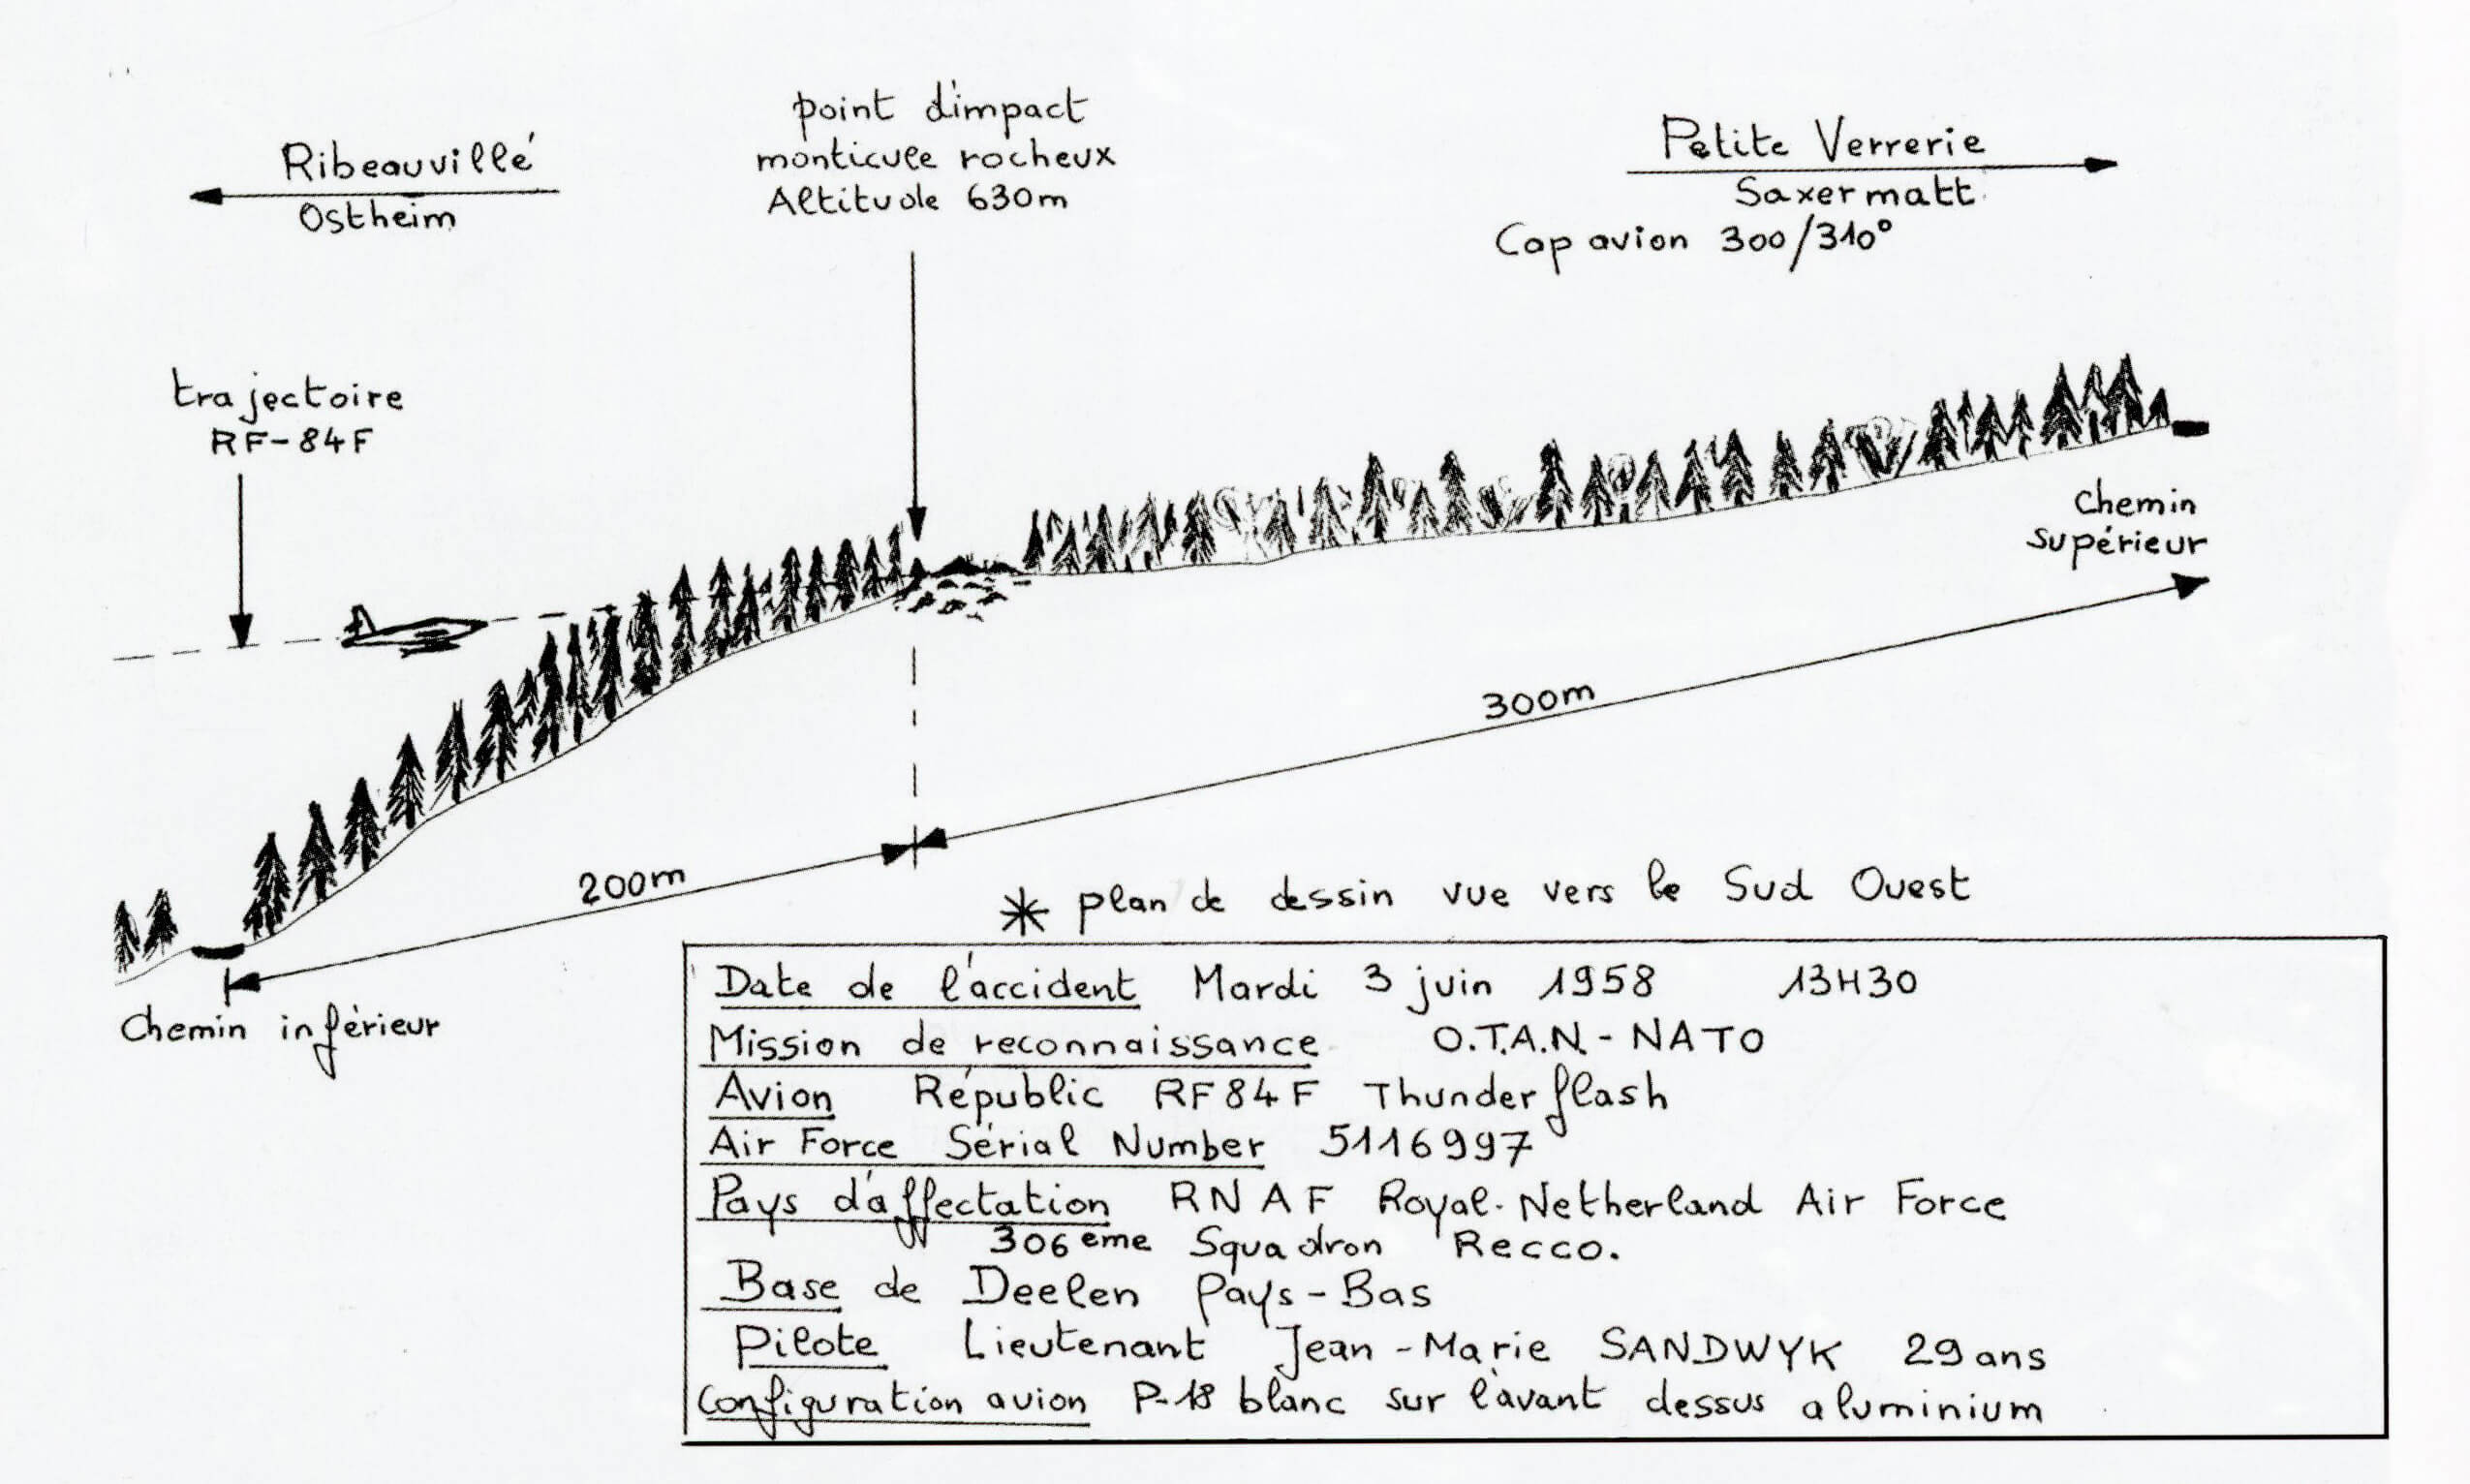 point d'impact
monticule rocheux
Altitude 630m
Ribeauvillé
Ostheim
Petite Verrerie
Saxermatt
Cap avion 300/310°
trajectoire
RF-84F
Chemin
supérieur
300m
200m
* plan de dessin vue vers le Sud Ouest
Chemin inférieur
Date de l'accident Mardi 3 juin 1958 13H30
Mission de reconnaissance O.T.A.N. - NATO
Avion Républic RF84F Thunderflash
Air Force Sérial Number 5116997
Pays d'affectation RNAF Royal. Netherland Air Force
306ème Squadron Recco.
Base de Deelen Pays-Bas
Pilote Lieutenant Jean-Marie SANDWYK 29 ans
Configuration avion P-18 blanc sur l'avant dessus aluminium